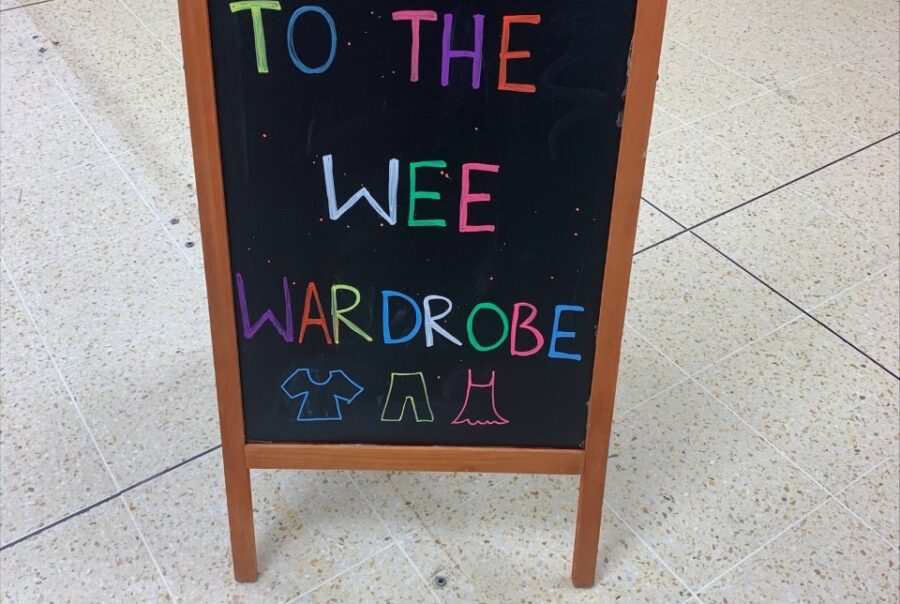 TO THE
WEE
WARDROBE